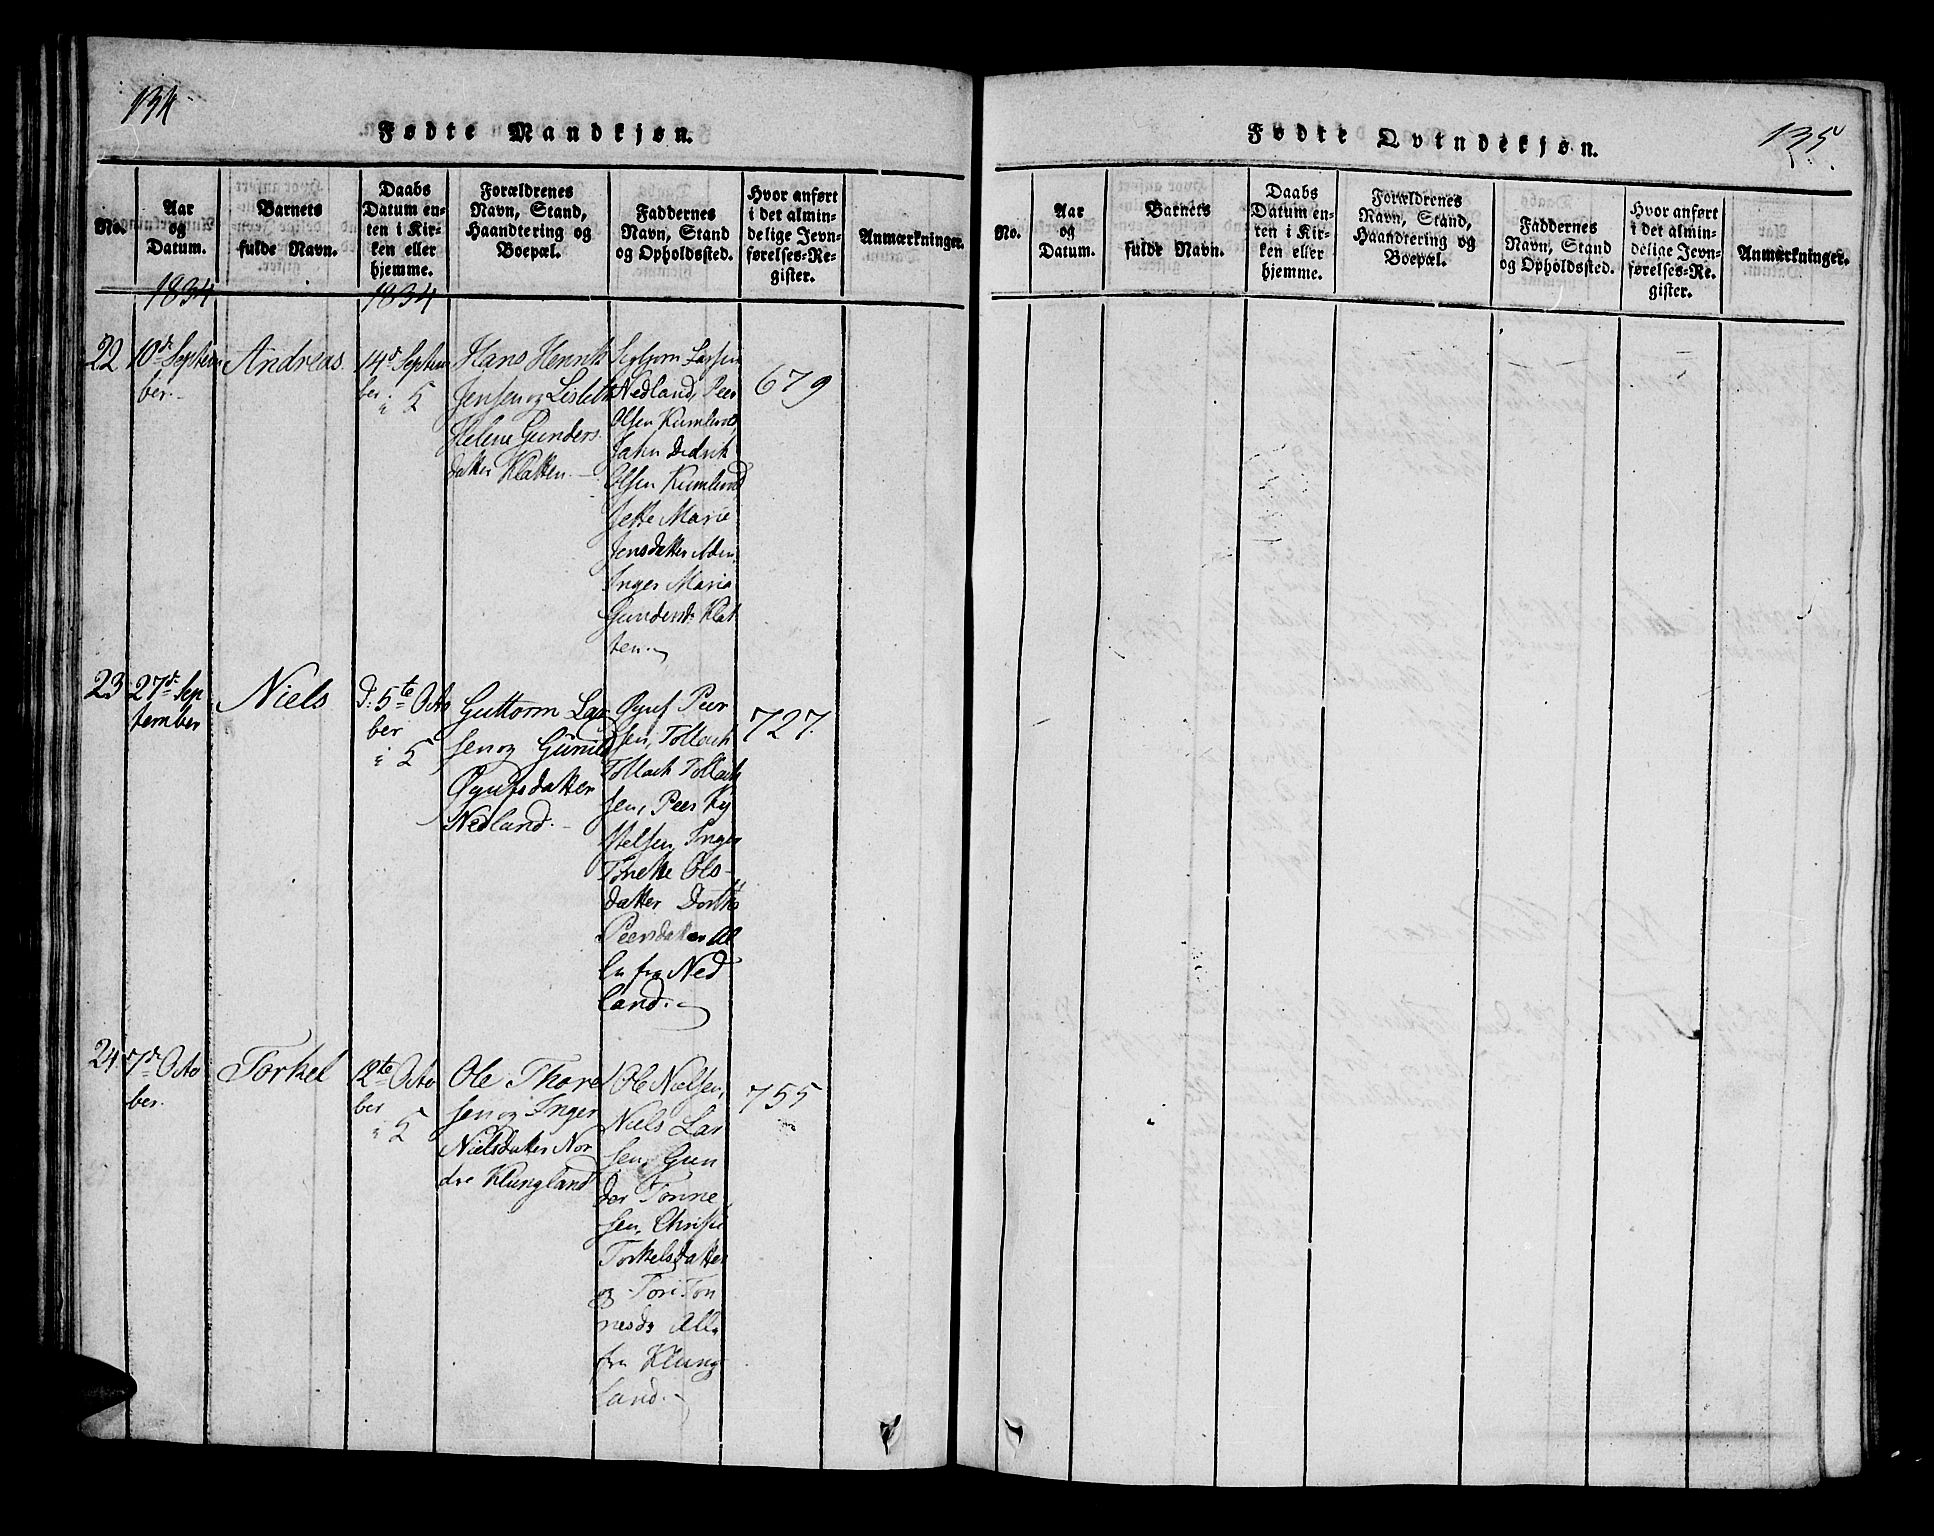 134
Fødte Mandkjøn.
No.
Aar
og
Datum.
Barnets
fulde Navn.
Daabs
Datum en-
ten i Kir-
ken eller
hjemme.
Forældrenes
Navn, Stand,
Haandtering og
Boepæl.
Faddernes
Navn, Stand
og Opholdssted.
Hvor anført
i det almin-
delige Jevn-
førelses-Re-
gister.
Anmærkninger.
1834
1834
22
10de Septem
ber.
Andreas.
14d Septem
ber.
Hans Henrik
Jensen og Lisbeth
Helene Gunders
datter Klatten.
Larsen
Nedland, Peer
Olsen Kumlevold
Jahn Didrik
Olsen Kumlevold
Jette Marie
Jensdatter
Inger Maria
Gundersd. Klat
ten.
679
23
27de Sep
tember
Niels
D: 5te Octo
ber
Guttorm Lar
sen og Gunild
Øgufsdatter
Nedland.
Øguf Peer
sen, Tollach
Tollach Tollach
sen, Peer Ky
stelsen, Inger
Tonette Ols-
datter Dorthe
Peersdatter Al
le fra Ned
land.
727.
24.
7de Octo
ber.
Torkel
12te Octo
ber
Ole Thore
sen og Inger
Nielsdatter Nor
dre Klungland
Ole Nielsen,
Niels Lar
sen, Gun
der Tonne
sen, Christi
Torkelsdatter
og Tori Ton
nesd. Alle
fra Klung
land.
755
135
Fødte Qvindekjøn.
No.
Aar
og
Datum.
Barnets
fulde Navn.
Daabs
Datum en-
ten i Kir-
ken eller
hjemme.
Forældrenes
Navn, Stand,
Haandtering og
Boepæl.
Faddernes
Navn, Stand
og Opholdssted.
Hvor anført
i det almin-
delige Jevn-
førelses-Re-
gister.
Anmærkninger.